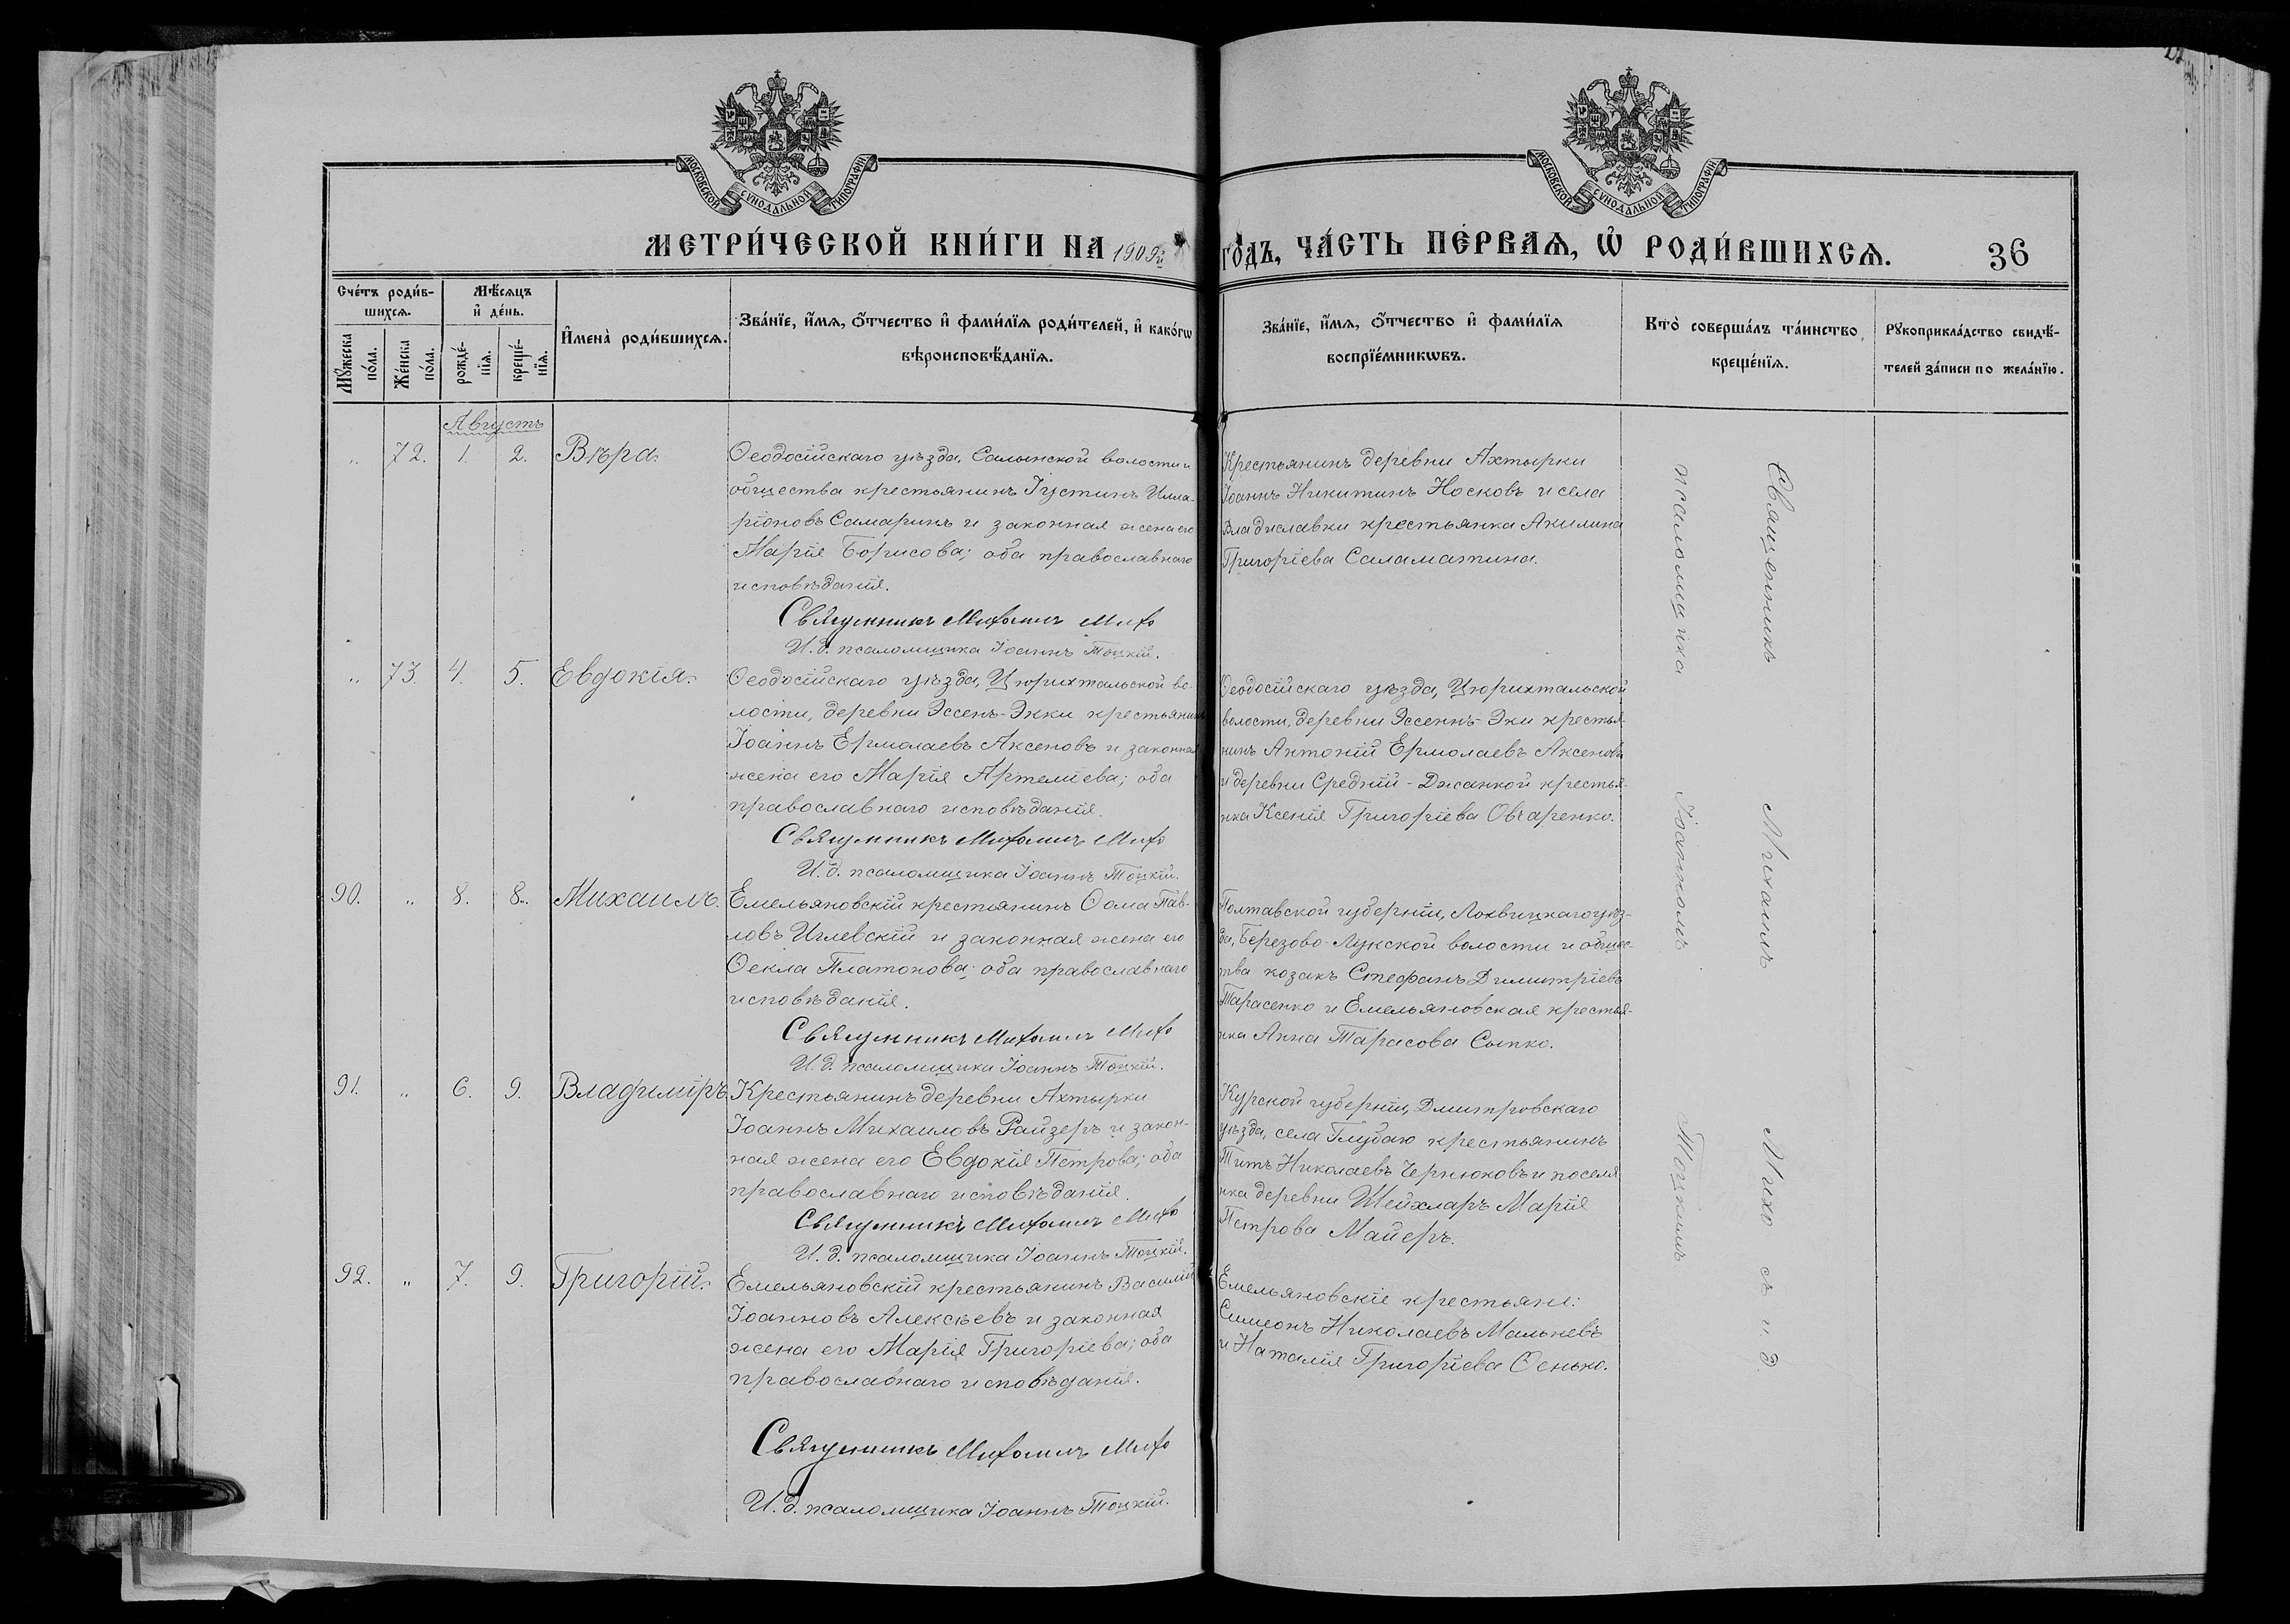 МОСКОВСКОЙ СѴНОДАЛЬНОЙ ТИПОГРАФІИ
МОСКОВСКОЙ СѴНОДАЛЬНОЙ ТИПОГРАФІИ
МЕТРИ́ЧЕСКОЙ КНИ́ГИ НА 1909й
ГО́ДЪ, ЧА́СТЬ ПЕ́РВАѦ, Ѽ РОДИ́ВШИХСѦ. 36
Сче́тъ роди́в-
шихсѧ.
Мꙋ́жеска по́ла.
Же́нска по́ла.
Мѣ́сѧцъ
и҆ де́нь.
рожде́-нїѧ.
креще́-нїѧ.
И҆мена̀ роди́вшихсѧ.
Зва́нїе, и҆́мѧ, ѻ҆́тчество и҆ фами́лїѧ роди́телей, и҆ како́гѡ
вѣроисповѣ́данїѧ.
Зва́нїе, и҆́мѧ, ѻ҆́тчество и҆ фами́лїѧ
воспрїе́мникѡвъ.
Кто̀ соверша́лъ та́инство
креще́нїѧ.
Рꙋкоприкла́дство свидѣ́-
телей за́писи по жела́нїю.
Августъ
„ 72. 1. 2. Вѣра.
Ѳеодосійскаго уѣзда, Салынской волости и
общества крестьянинъ Іустинъ Илла-
ріоновъ Самаринъ и законная жена его
Марія Борисова; оба православнаго
исповѣданія.
Священникъ Михаилъ Михо
И. д. псаломщика Іоаннъ Тоцкій.
Крестьянинъ деревни Ахтырки
Іоаннъ Никитинъ Носковъ и села
Владиславки крестьянка Акилина
Григоріева Саламатина.
„ 73. 4. 5. Евдокія.
Ѳеодосійскаго уѣзда, Цюрихтальской во-
лости, деревни Эссенъ-Экки крестьянинъ
Іоаннъ Ермолаевъ Аксеновъ и законная
жена его Марія Артеміева; оба
православнаго исповѣданія.
Священникъ Михаилъ Михо
И. д. псаломщика Іоаннъ Тоцкій.
Ѳеодосійскаго уѣзда, Цюрихтальской
волости, деревни Эссеннъ-Эки крестья-
нинъ Антоній Ермолаевъ Аксеновъ
и деревни Средній-Джанкой крестья-
нка Ксенія Григоріева Овчаренко.
90. „ 8. 8. Михаилъ.
Емельяновскій крестьянинъ Ѳома Пав-
ловъ Иглевскій и законная жена его
Ѳекла Платонова; оба православнаго
исповѣданія.
Священникъ Михаилъ Михо
И. д. псаломщика Іоаннъ Тоцкій.
Полтавской губерніи, Лохвицкаго уѣз-
да, Березово-Лукской волости и общес-
тва козакъ Стефанъ Димитріевъ
Тарасенко и Емельяновская крестья-
нка Анна Тарасова Сыпко.
91. „ 6. 9. Владиміръ.
Крестьянинъ деревни Ахтырки
Іоаннъ Михаиловъ Райзеръ и закон-
ная жена его Евдокія Петрова; оба
православнаго исповѣданія.
Священникъ Михаилъ Михо
И. д. псаломщика Іоаннъ Тоцкій.
Курской губерніи, Дмитровскаго
уѣзда, села Глубаго крестьянинъ
Титъ Николаевъ Чернюковъ и поселя-
нка деревни Шейхларъ Марія
Петрова Майеръ.
92. „ 7. 9. Григорій.
Емельяновскій крестьянинъ Василій
Іоанновъ Алексѣевъ и законная
жена его Марія Григоріева; оба
православнаго исповѣданія.
Священникъ Михаилъ Михо
И. д. псаломщика Іоаннъ Тоцкій.
Емельяновскіе крестьяне:
Симеонъ Николаевъ Мальневъ
и Наталія Григоріева Ѳенько.
Священникъ Михаилъ Михо съ и. д
псаломщика Іоанномъ Тоцкимъ